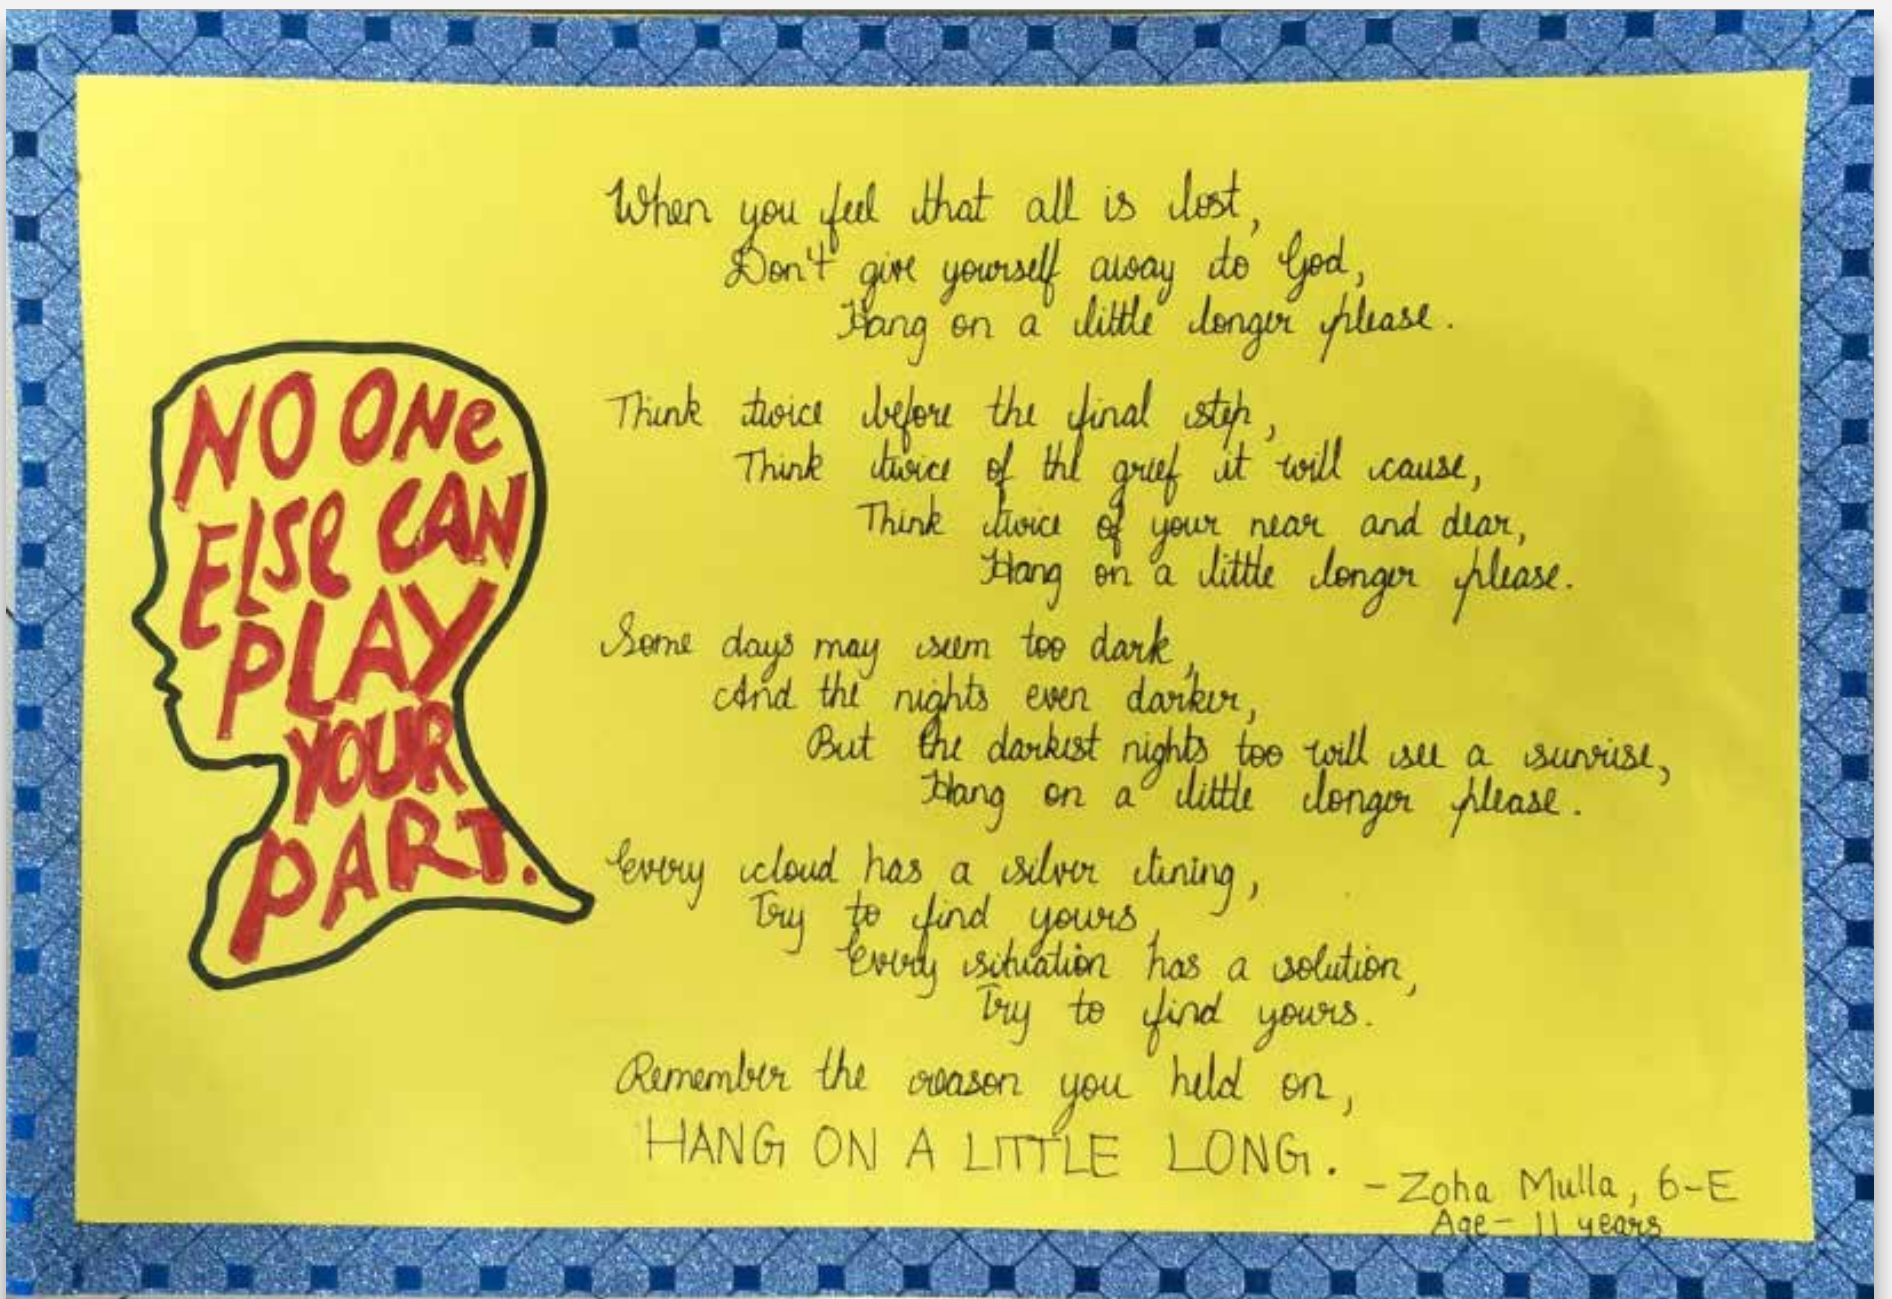 NO ONe
ELSe CAN
PLAY
YOUR
PART.
When you feel that all is lost,
Don't give yourself away to God,
Hang on a little longer please.
Think twice before the final step,
Think twice of the grief it will cause,
Think twice of your near and dear,
Hang on a little longer please.
Some days may seem too dark,
And the nights even darker,
But the darkest nights too will see a sunrise,
Hang on a little longer please.
Every cloud has a silver lining,
Try to find yours,
Every situation has a solution,
Try to find yours.
Remember the reason you held on,
HANG ON A LITTLE LONG.
- Zoha Mulla, 6-E
Age - 11 years